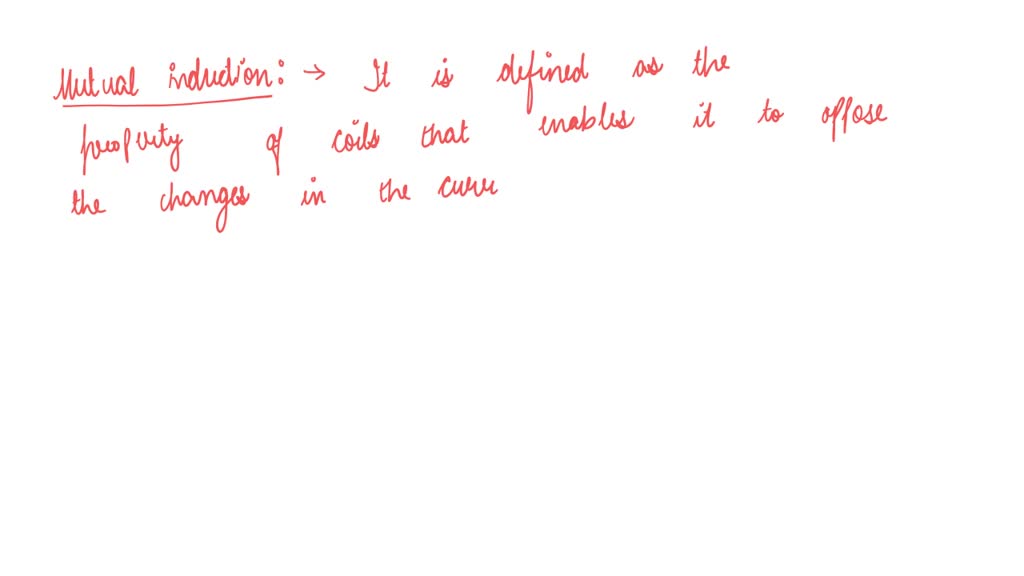 Mutual induction: → It is defined as the
property of coils that enables it to oppose
the changes in the curr